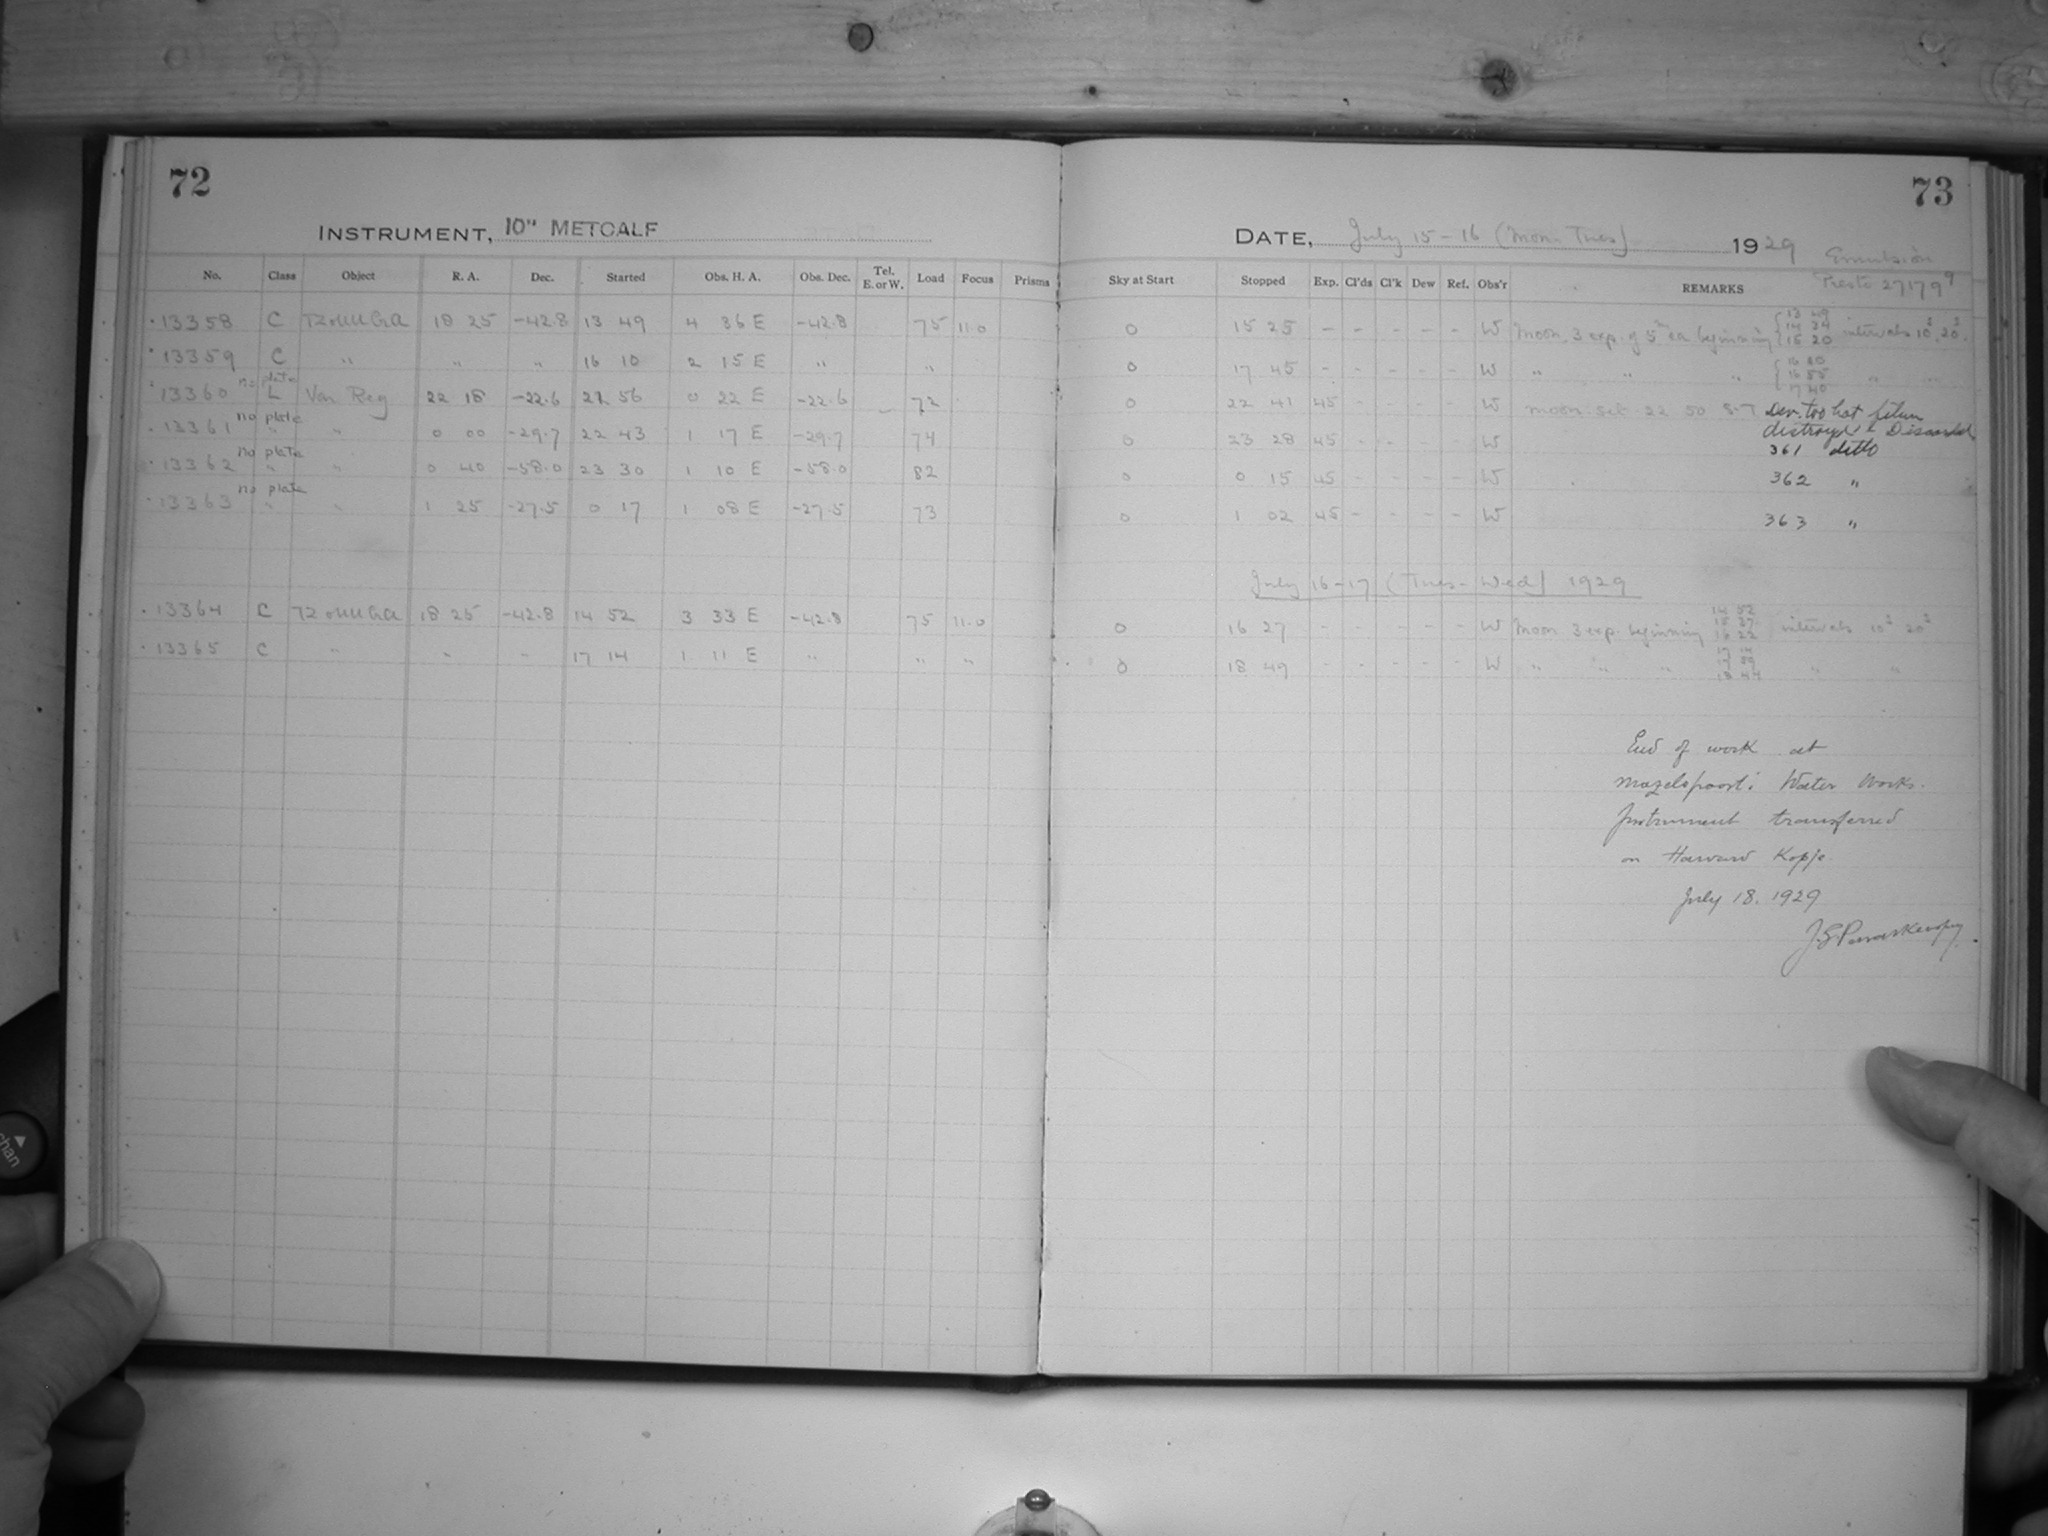 72
INSTRUMENT, 10" METCALF
No. Class Object R. A. Dec. Started Obs. H. A. Obs. Dec. Tel. E. or W. Load Focus Prisms
13358 C 18 25 -42.8 13 49 4 36 E -42.8 75 11.0
13359 C " " " 16 10 2 15 E " "
13360 no plate L Var Reg 22 18 -22.6 21 56 0 22 E -22.6 72
13361 no plate " " 0 00 -29.7 22 43 1 17 E -29.7 74
13362 no plate " " 0 40 -58.0 23 30 1 10 E -58.0 82
13363 no plate " " 1 25 -27.5 0 17 1 08 E -27.5 73
13364 C 18 25 -42.8 14 52 3 33 E -42.8 75 11.0
13365 C " " " 17 14 1 11 E " " "
73
DATE, July 15-16 (Mon-Tues) 1929
Emulsion
27179
Sky at Start Stopped Exp. Cl'ds Cl'k Dew Ref. Obs'r REMARKS
0 15 25 - - - - - W Moon 3 exp. of 5m ea beginning { 13 49 14 34 15 20 intervals 10s, 20s.
0 17 45 - - - - - W " " " { 16 10 16 55 17 40 " "
0 22 41 45 - - - - W moon set 22 50 S.T. Dev. too hot film
destroyed & Discarded
0 23 28 45 - - - - W 361 ditto
0 0 15 45 - - - - W 362 "
0 1 02 45 - - - - W 363 "
July 16-17 (Tues-Wed) 1929
0 16 27 - - - - - W Moon 3 exp. beginning 14 52 15 37 16 22 intervals 10s 20s
0 18 49 - - - - - W " " " 17 14 17 59 18 44 " "
End of work at
Mazelspoort: Water Works.
Instrument transferred
on Harvard Kopje.
July 18. 1929
J.S. Paraskevopoulos